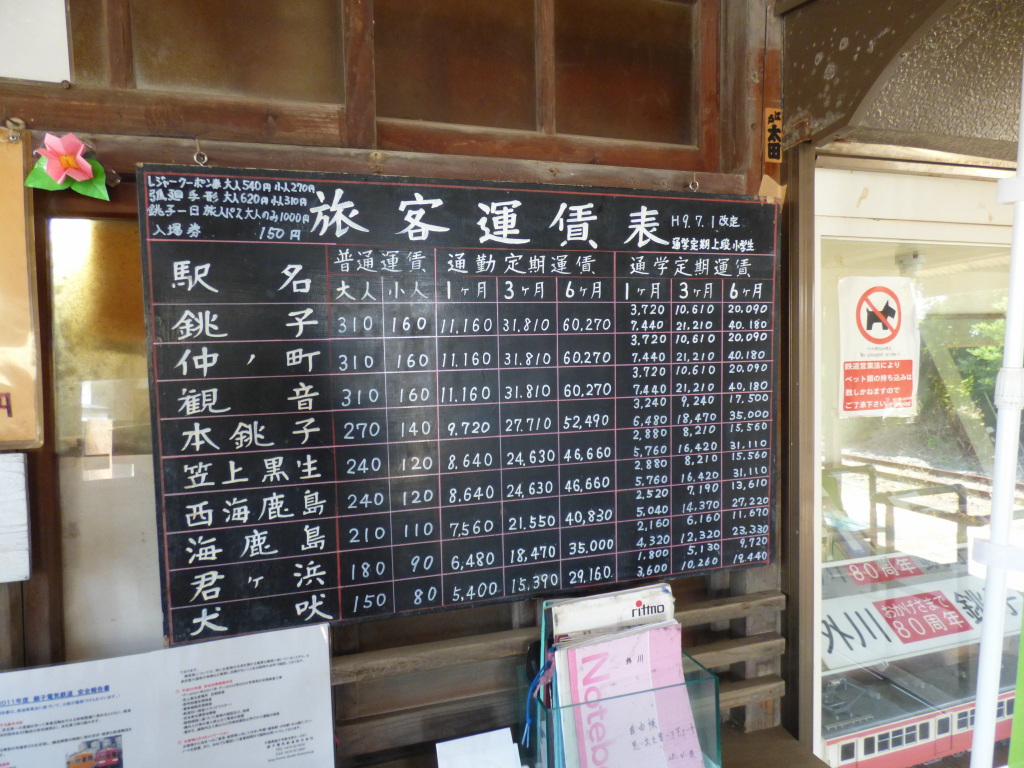 レジャークーポン券 大人540円 小人270円
弧廻手形 大人620円 小人310円
銚子一日旅人パス 大人のみ1000円
入場券 150円
旅客運賃表
H9.7.1改定
通学定期上段小学生
駅名 普通運賃 通勤定期運賃 通学定期運賃
大人 小人 1ヶ月 3ヶ月 6ヶ月 1ヶ月 3ヶ月 6ヶ月
3,720 10,610 20,090
銚子 310 160 11,160 31,810 60,270 7,440 21,210 40,180
3,720 10,610 20,090
仲ノ町 310 160 11,160 31,810 60,270 7,440 21,210 40,180
3,720 10,610 20,090
観音 310 160 11,160 31,810 60,270 7,440 21,210 40,180
3,240 9,240 17,500
本銚子 270 140 9,720 27,710 52,490 6,480 18,470 35,000
2,880 8,210 15,560
笠上黒生 240 120 8,640 24,630 46,660 5,760 16,420 31,110
2,880 8,210 15,560
西海鹿島 240 120 8,640 24,630 46,660 5,760 16,420 31,110
2,520 7,190 13,610
海鹿島 210 110 7,560 21,550 40,830 5,040 14,370 27,220
2,160 6,160 11,670
君ヶ浜 180 90 6,480 18,470 35,000 4,320 12,320 23,330
1,800 5,130 9,720
犬吠 150 80 5,400 15,390 29,160 3,600 10,260 19,440
太田
鉄道営業法により
ペット類の持ち込みは
致しかねますので
ご了承下さい
80周年
外川
おかげさまで
80周年
銚
円
2011年度 銚子電気鉄道 安全報告書
ritmo
外川
Noteb
自由帳